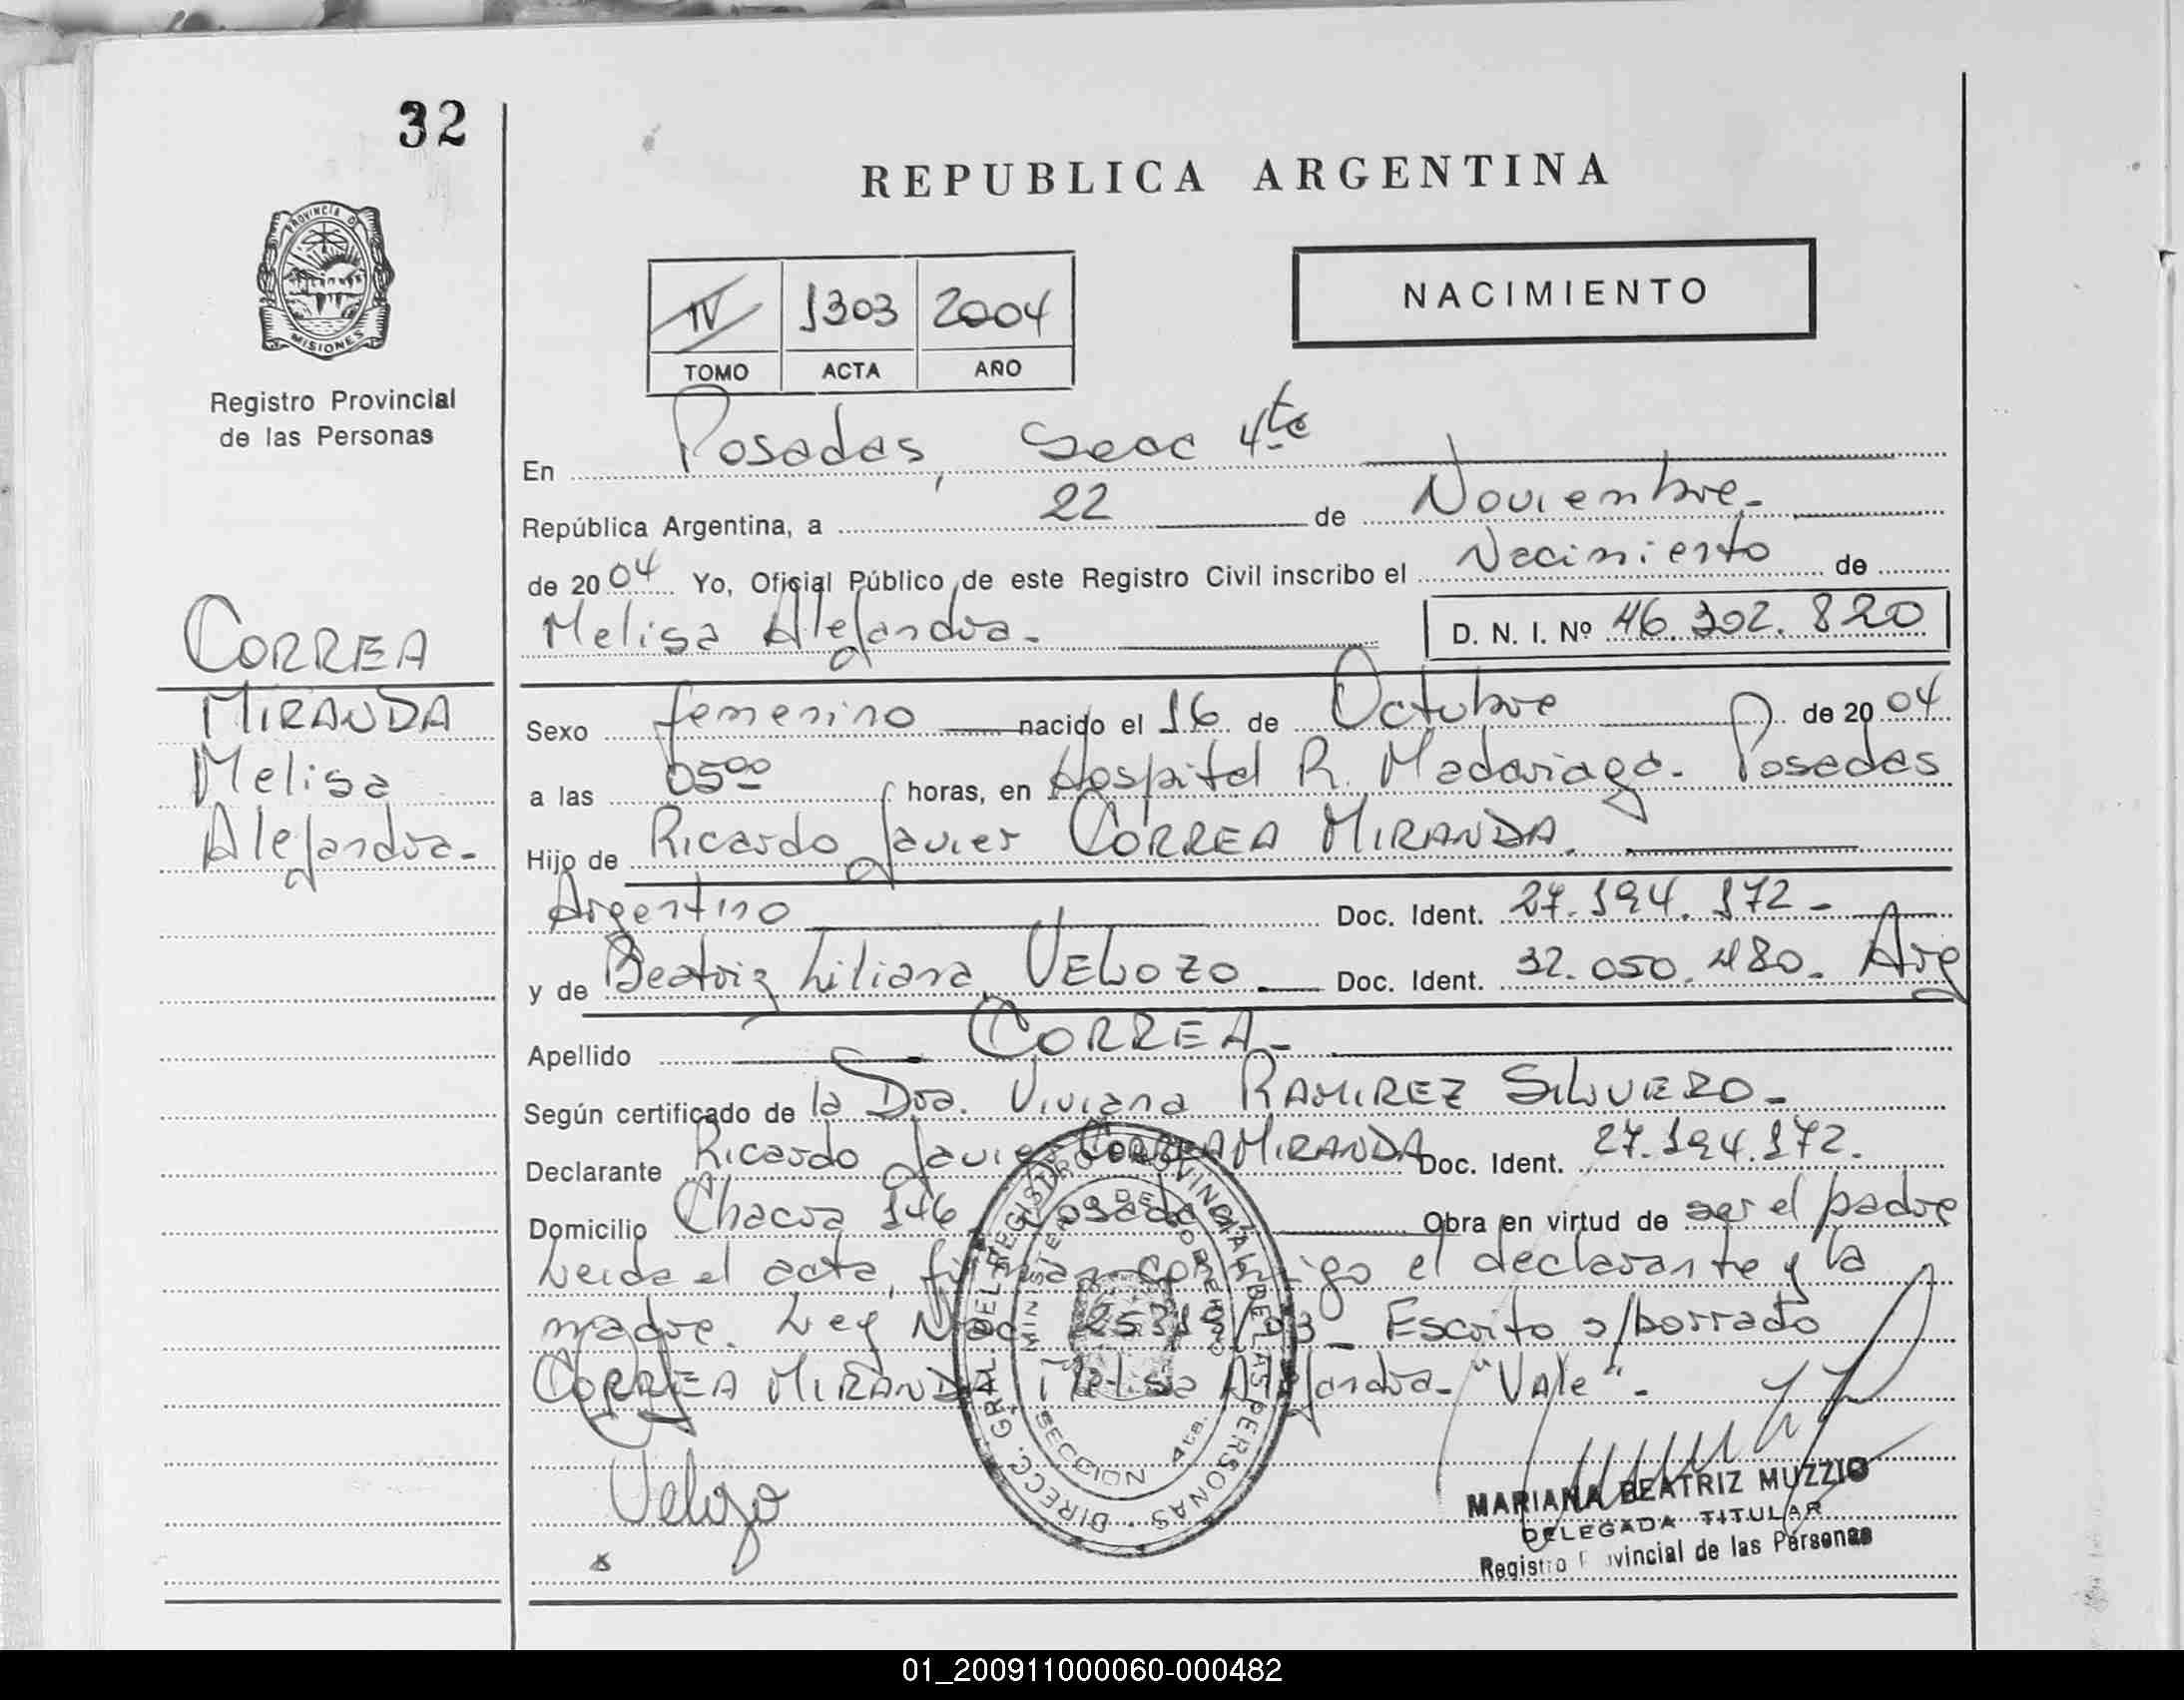 32
REPUBLICA ARGENTINA
PROVINCIA DE
MISIONES
Registro Provincial
de las Personas
IV 1303 2004
TOMO ACTA AÑO
NACIMIENTO
En Posadas, Secc 4ta
República Argentina, a 22 de Noviembre.
de 2004 Yo, Oficial Público de este Registro Civil inscribo el Nacimiento de
Melisa Alejandra.
D. N. I. Nº 46.302.820
CORREA
MIRANDA
Melisa
Alejandra.
Sexo femenino nacido el 16 de Octubre de 2004
a las 05⁰⁰ horas, en Hospital R. Madariaga. Posadas
Hijo de Ricardo Javier CORREA MIRANDA.
Argentino Doc. Ident. 27.194.172-
y de Beatriz Liliana VELOZO Doc. Ident. 32.050.480. Arg
Apellido CORREA-
Según certificado de la Dra. Viviana RAMIREZ SILVERO-
Declarante Ricardo Javier CORREA MIRANDA Doc. Ident. 27.194.172.
Domicilio Chacra 146, Posadas Obra en virtud de ser el padre
Leida el acta, firman conmigo el declarante y la
madre. Ley Nac. Escrito s/borrado
CORREA MIRANDA Melisa Alejandra- "Vale"-
DIRECC. GRAL. DEL REGISTRO PROVINCIAL DE LAS PERSONAS
MINISTERIO DE GOBIERNO
SECCION 4ta.
Velozo
x
MARIANA BEATRIZ MUZZIO
DELEGADA TITULAR
Registro Provincial de las Personas
01_200911000060-000482